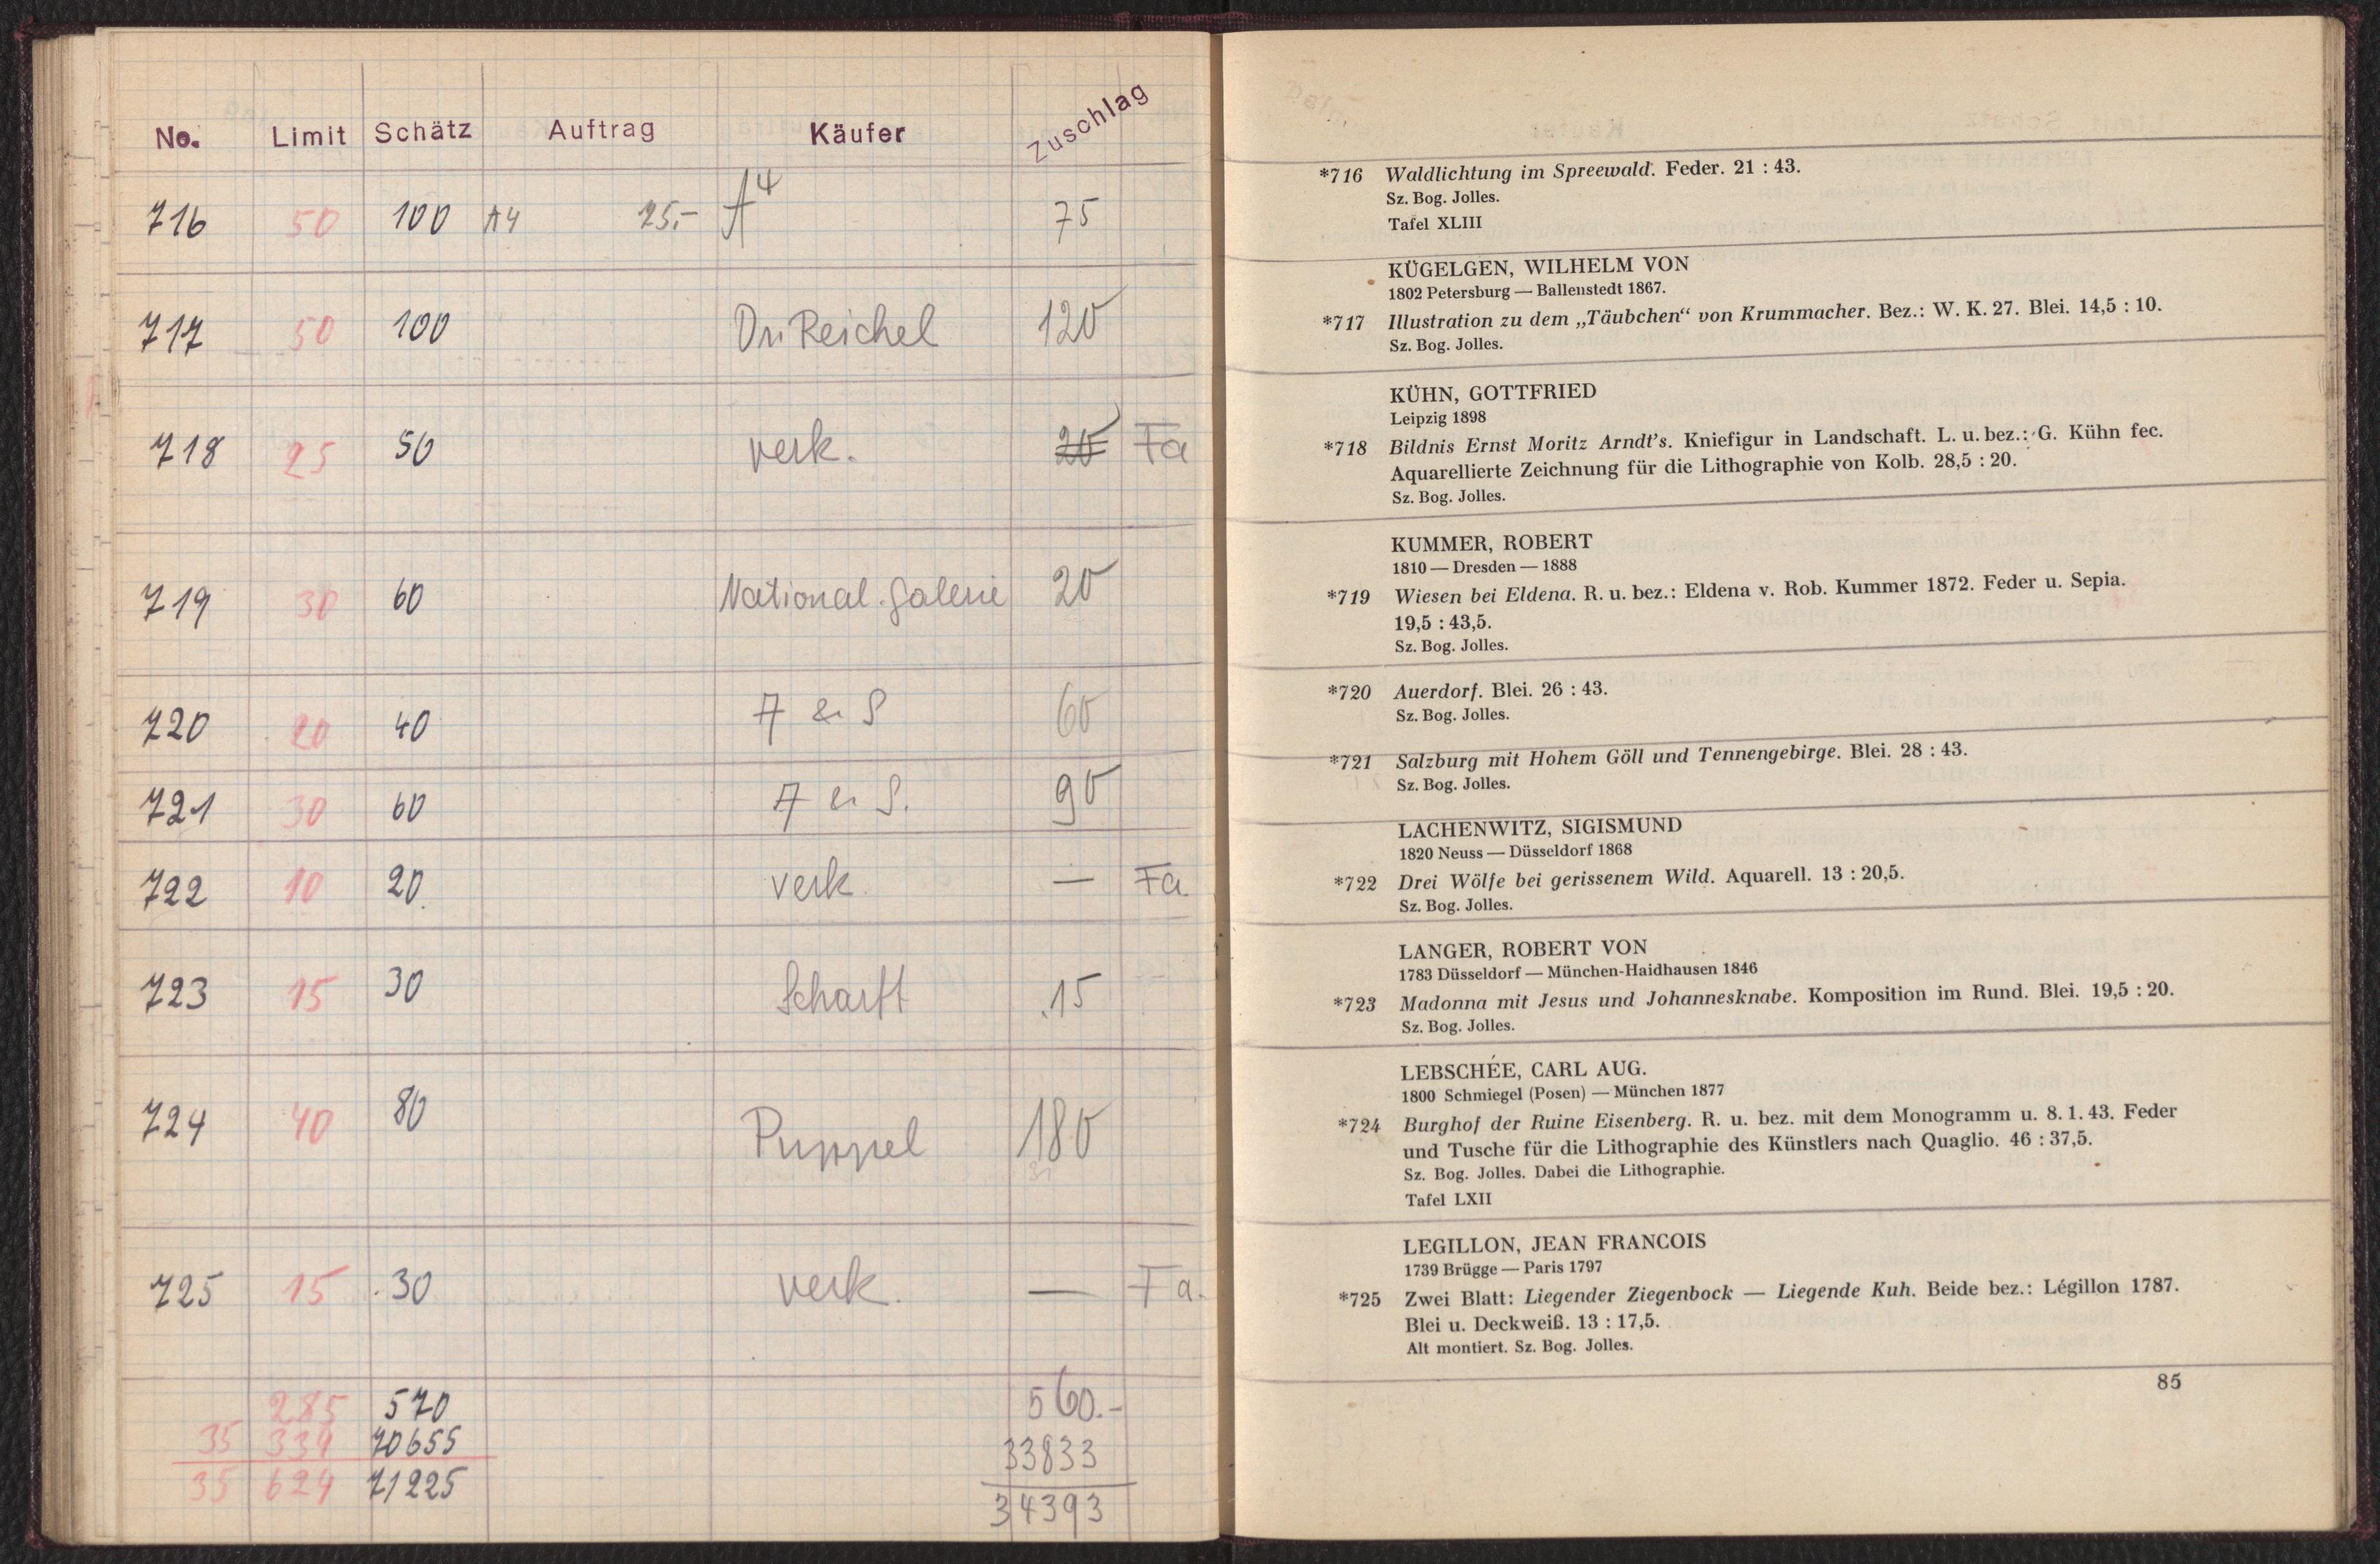 No. Limit Schätz Auftrag Käufer Zuschlag
716 50 100 A4 25.- A4 75
717 50 100 Dr. Reichel 120
718 25 50 verk. 20 Fa
719 30 60 National.Galerie 20
720 20 40 A & S 60
721 30 60 A & S. 90
722 10 20. verk. — Fa.
723 15 30 Scharff 15
724 40 80 Puppel 180
725 15 30 verk. — Fa.
285 570 560.-
35 339 70655 33833
35 624 71225 34393
*716 Waldlichtung im Spreewald. Feder. 21 : 43.
Sz. Bog. Jolles.
Tafel XLIII
KÜGELGEN, WILHELM VON
1802 Petersburg — Ballenstedt 1867.
*717 Illustration zu dem „Täubchen“ von Krummacher. Bez.: W. K. 27. Blei. 14,5 : 10.
Sz. Bog. Jolles.
KÜHN, GOTTFRIED
Leipzig 1898
*718 Bildnis Ernst Moritz Arndt's. Kniefigur in Landschaft. L. u. bez.: G. Kühn fec.
Aquarellierte Zeichnung für die Lithographie von Kolb. 28,5 : 20.
Sz. Bog. Jolles.
KUMMER, ROBERT
1810 — Dresden — 1888
*719 Wiesen bei Eldena. R. u. bez.: Eldena v. Rob. Kummer 1872. Feder u. Sepia.
19,5 : 43,5.
Sz. Bog. Jolles.
*720 Auerdorf. Blei. 26 : 43.
Sz. Bog. Jolles.
*721 Salzburg mit Hohem Göll und Tennengebirge. Blei. 28 : 43.
Sz. Bog. Jolles.
LACHENWITZ, SIGISMUND
1820 Neuss — Düsseldorf 1868
*722 Drei Wölfe bei gerissenem Wild. Aquarell. 13 : 20,5.
Sz. Bog. Jolles.
LANGER, ROBERT VON
1783 Düsseldorf — München-Haidhausen 1846
*723 Madonna mit Jesus und Johannesknabe. Komposition im Rund. Blei. 19,5 : 20.
Sz. Bog. Jolles.
LEBSCHÉE, CARL AUG.
1800 Schmiegel (Posen) — München 1877
*724 Burghof der Ruine Eisenberg. R. u. bez. mit dem Monogramm u. 8. 1. 43. Feder
und Tusche für die Lithographie des Künstlers nach Quaglio. 46 : 37,5.
Sz. Bog. Jolles. Dabei die Lithographie.
Tafel LXII
LEGILLON, JEAN FRANCOIS
1739 Brügge — Paris 1797
*725 Zwei Blatt: Liegender Ziegenbock — Liegende Kuh. Beide bez.: Légillon 1787.
Blei u. Deckweiß. 13 : 17,5.
Alt montiert. Sz. Bog. Jolles.
85